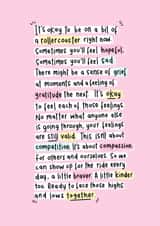 It's okay to be on a bit of
a rollercoaster right now.
Sometimes you'll feel hopeful.
Sometimes you'll feel sad.
There might be a sense of grief
at moments and a feeling of
gratitude the next. It's okay
to feel each of those feelings.
No matter what anyone else
is going through, your feelings
are still valid. This isn't about
competition, it's about compassion.
For others and ourselves. So we
can show up for the ride every
day, a little braver. A little kinder
too. Ready to face those highs
and lows together.